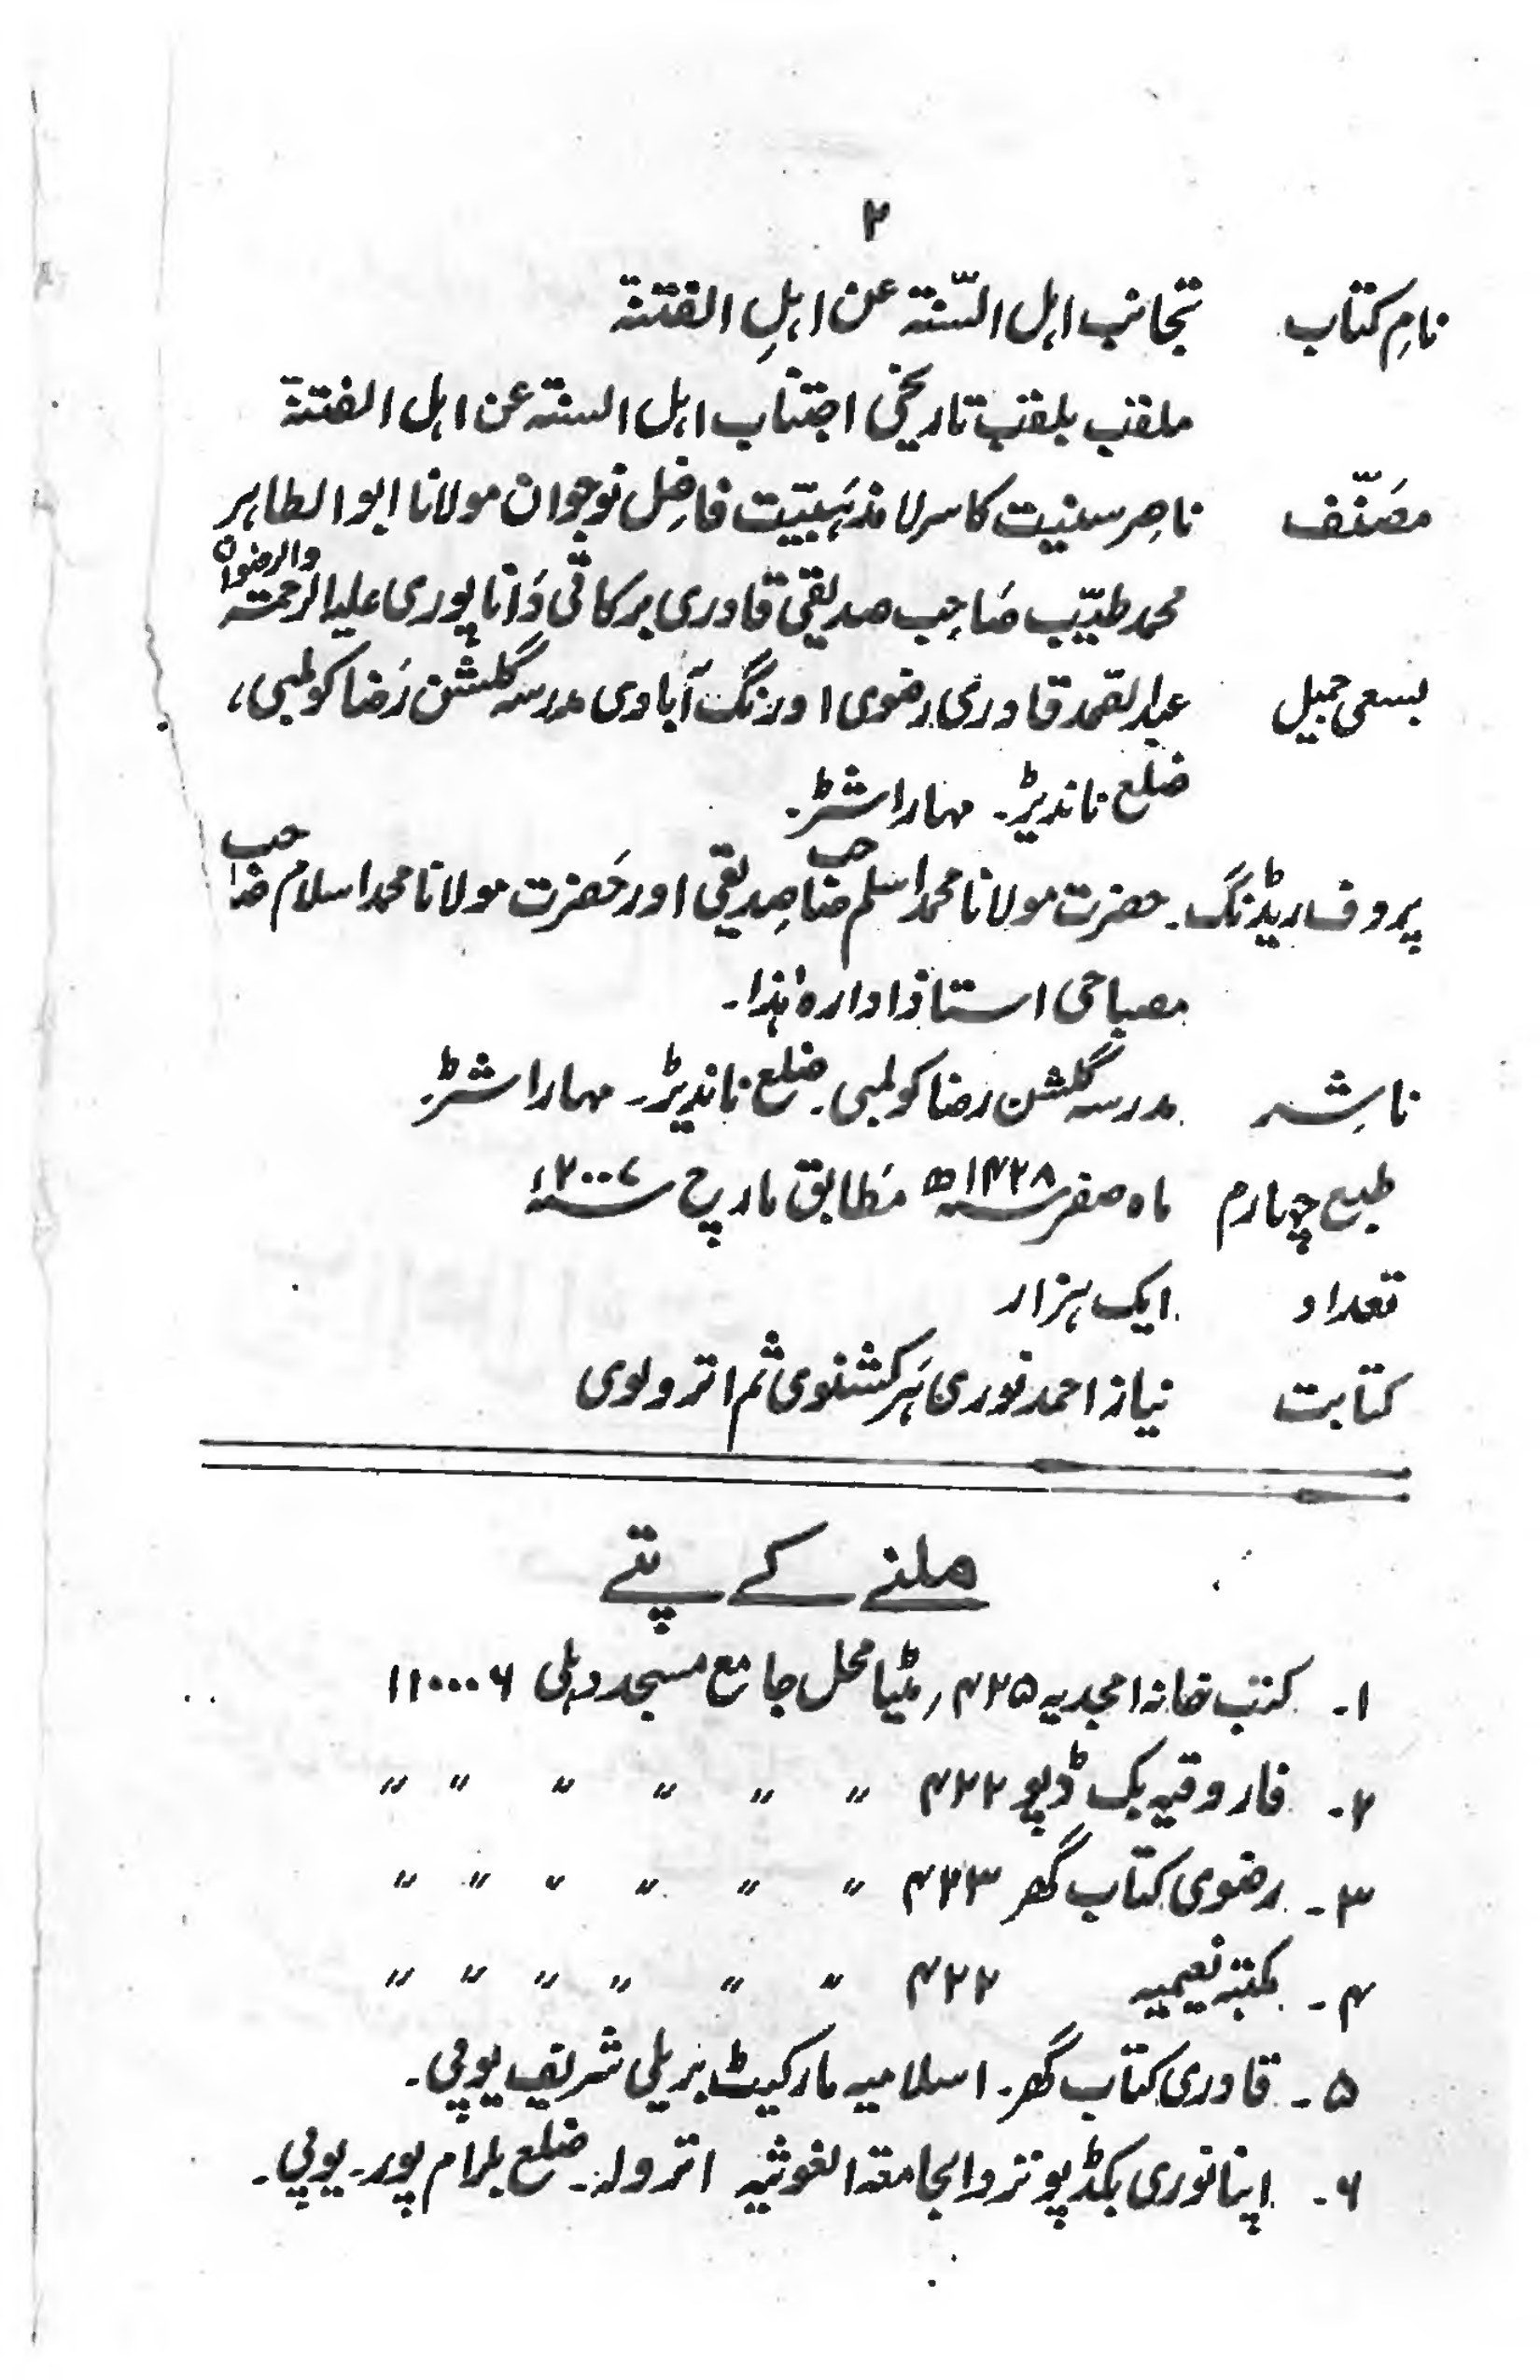 ۲
نامِ کتاب تجانب اہل السّنتہ عن اہلِ الفتنۃ
ملقب بلقب تاریخی اجتناب اہل السنتہ عن اہل الفتنۃ
مصَنّف ناصِر سنیت کاسر لا مذہَبیّت فاضِل نوجوان مولانا ابو الطاہر
محمد طیّب صَاحِب صدیقی قادری برکاتی دَانا پوری علیہ الرحمتہ والرضوان
بسعی جمیل عبد الصّمد قادری رضوی اورنگ آبادی مدرسہ گلشن رَضا کولمبی،
ضلع ناندیڑ۔ مہاراشٹر۔
پروف ریڈنگ۔ حضرت مولانا محمد اسلم صَاحب صِدیقی اور حَضرت مولانا محمد اسلام صَاحب
مصباحی استاذ ادارہ ہٰذا۔
ناشِر مدرسہ گلشن رضا کولمبی۔ ضلع ناندیڑ۔ مہاراشٹر۔
طبع چہارم ماہ صفر ۱۴۲۸ھ مَطابق مارچ ۲۰۰۷ء
تعداد ایک ہزار
کتابت نیاز احمد نوری ہَرکشنوی ثم اترولوی
ملنے کے پتے
۱۔ کتب خانہ امجدیہ ۴۲۵، مٹیا محل جامع مسجد دہلی ۱۱۰۰۰۶
۲۔ فاروقیہ بک ڈپو ۴۲۲ 〃 〃 〃 〃 〃 〃
۳۔ رضوی کتاب گھر ۴۲۳ 〃 〃 〃 〃 〃 〃
۴۔ مکتبہ نعیمیہ ۴۲۲ 〃 〃 〃 〃 〃 〃
۵۔ قادری کتاب گھر۔ اسلامیہ مارکیٹ بریلی شریف یوپی۔
۶۔ اپنا نوری بکڈپو نزد الجامعتہ الغوثیہ اترولہ۔ ضلع بلرام پور۔ یوپی۔